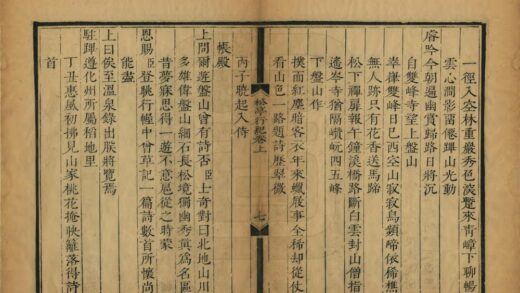 一徑入空林重巖秀色淡蹔來青嶂下聊暢
雲心澗影菑僊蹕山光動
睿吟今朝遍幽賞歸路日將沉
自雙峰寺望上盤山
雙峰日巳西空山寂寂鳥頻啼依稀樵
無人跡只有花香送馬蹄
松下禪房報午鐘溪橋路斷白雲封山僧指
遙岑寺猶隔嶙峋四五峰
下盤山作
撲面紅塵暗客衣年來蠟屐事全稀却從仗
看山色一路題詩歷翠微
松亭行紀卷上
七
丙子曉起入侍
帳殿
上問爾遊盤山曾有詩否臣士奇對曰北地山川
多雄偉盤山細石長松境獨幽秀莫爲名區
昔夢寐思得一遊不意扈從之時蒙
恩賜臣登眺行經中曾草記一篇詩數首所懷尚
能盡
上曰俟至溫泉錄出朕將覽焉
駐蹕遵化州所屬稻地里
丁丑惠風初拂見山家桃花掩映籬落得詩
首